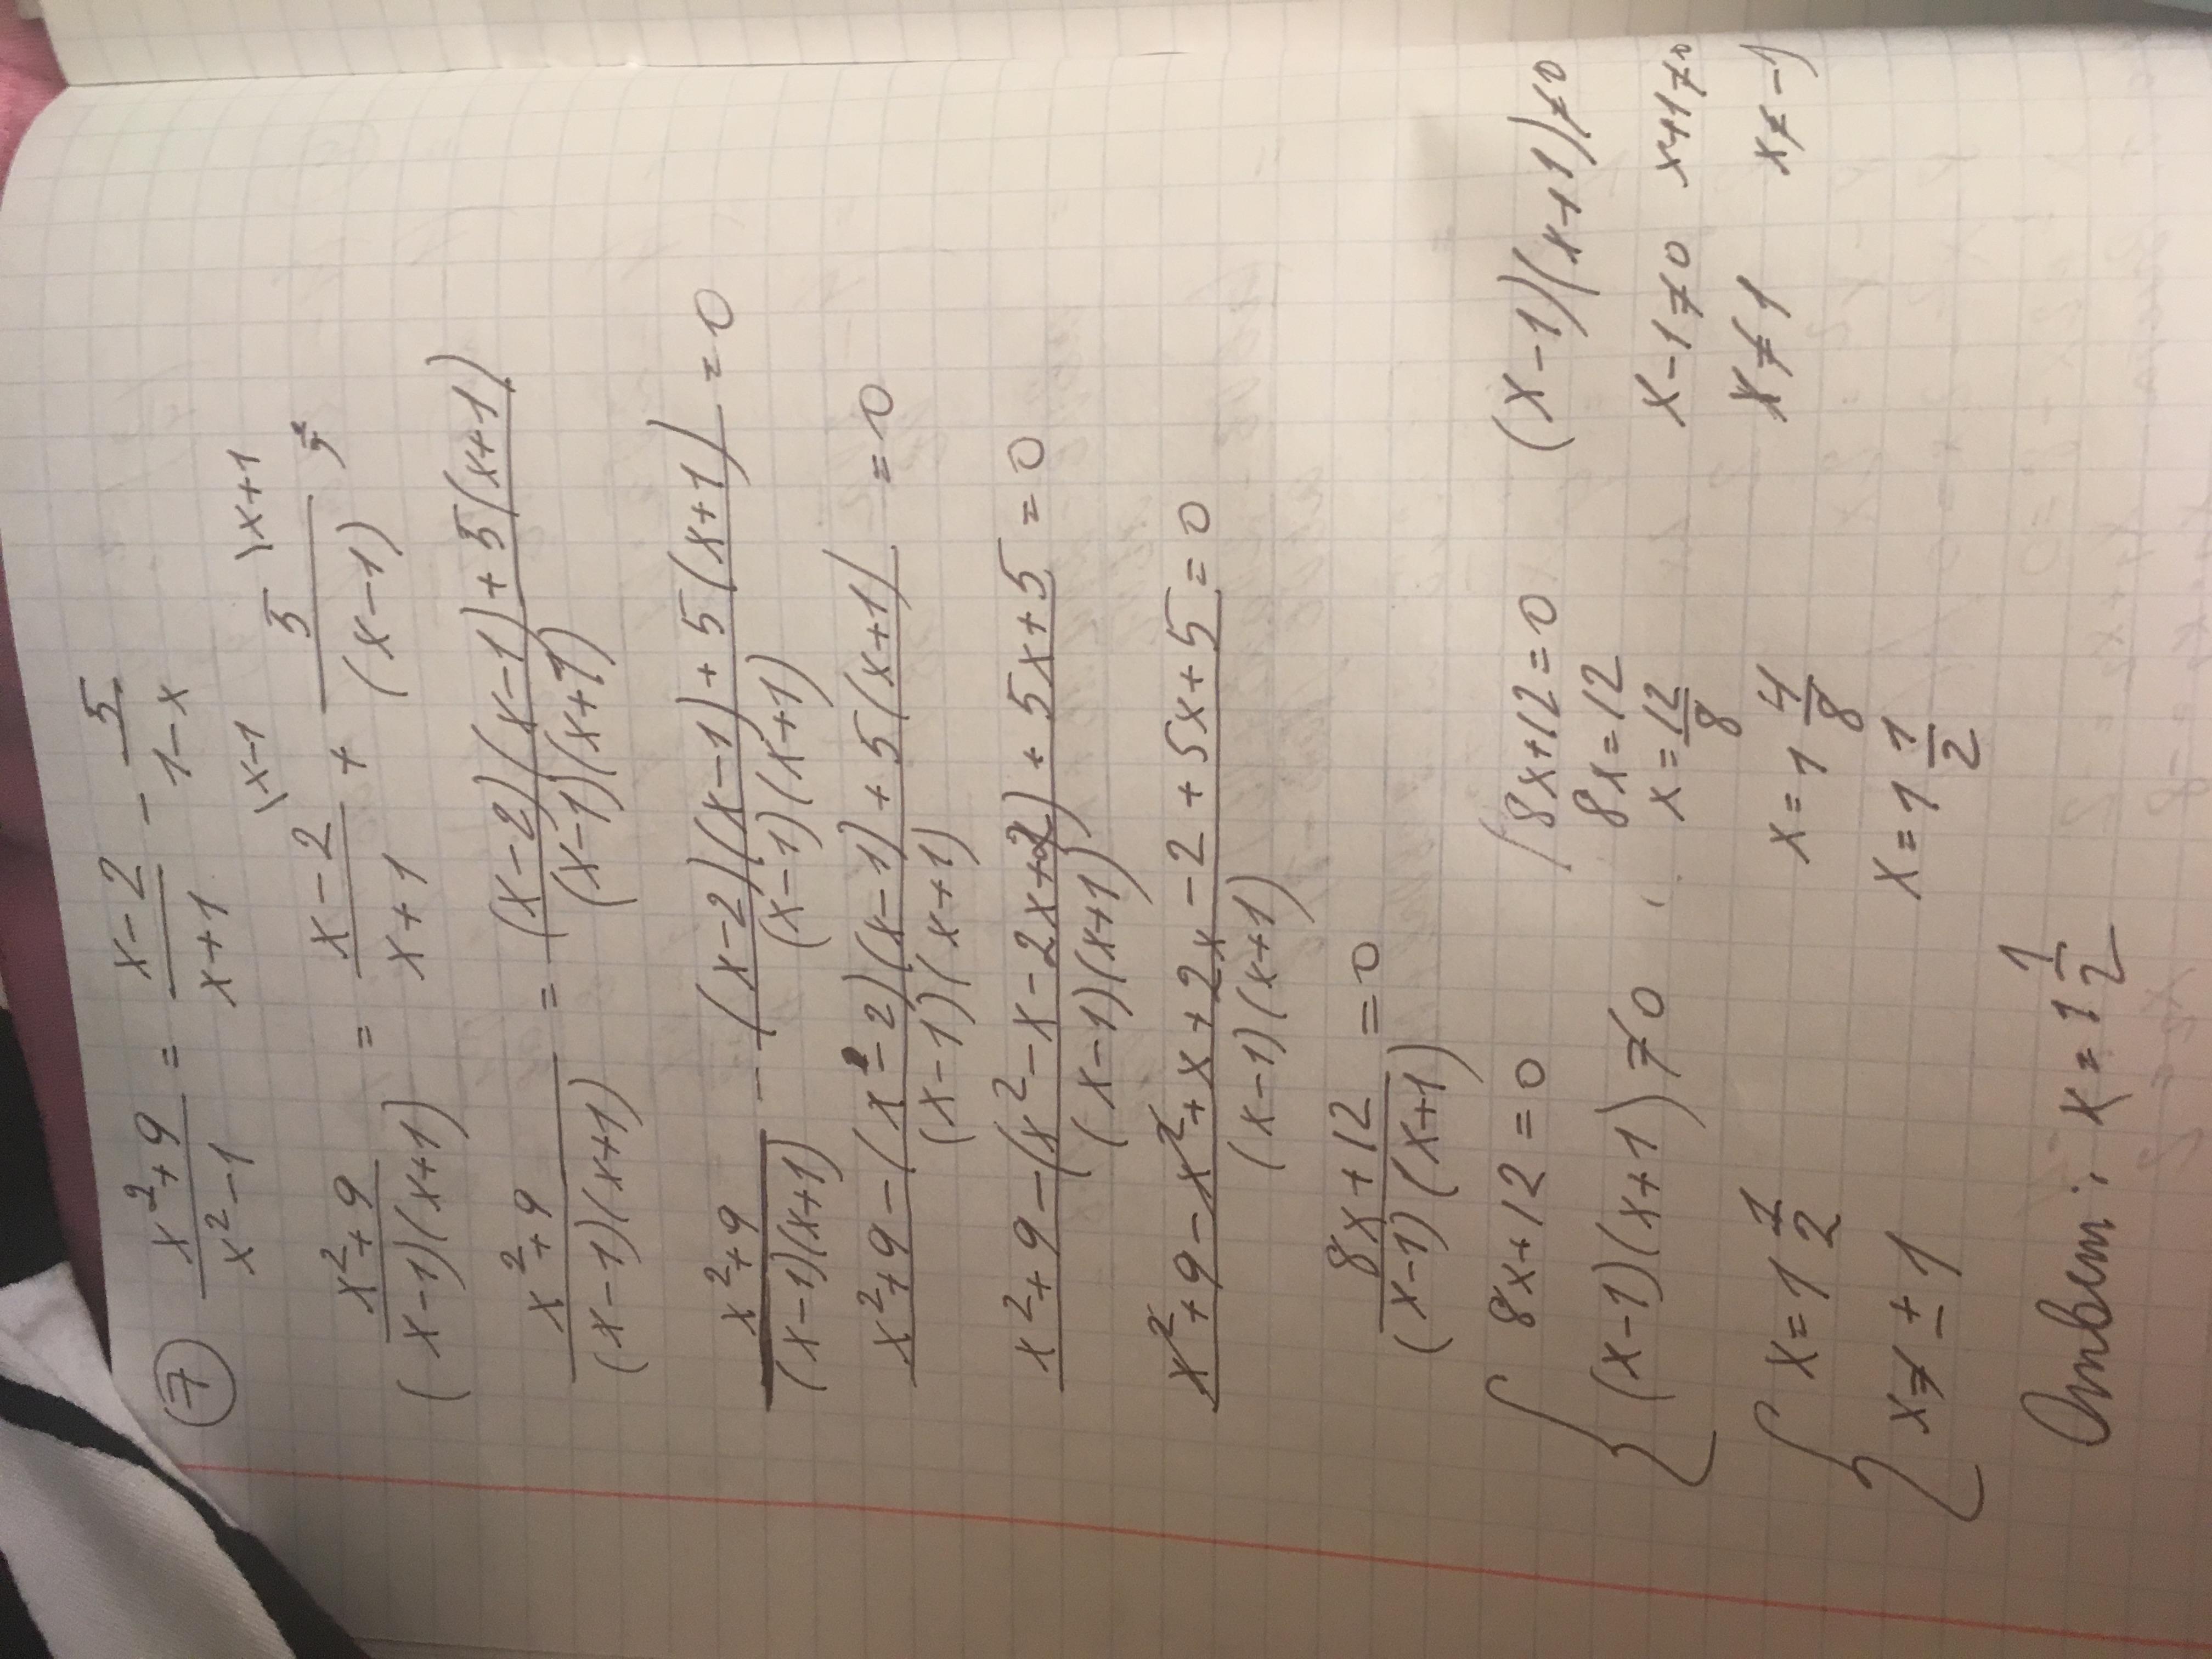 ⑦ \frac{x^2+9}{x^2-1} = \frac{x-2}{x+1} - \frac{5}{1-x}
\frac{x^2+9}{(x-1)(x+1)} = \frac{x-2}{x+1}^{\x-1} + \frac{5}{(x-1)}^{\x+1}
\frac{x^2+9}{(x-1)(x+1)} = \frac{(x-2)(x-1)+5(x+1)}{(x-1)(x+1)}
\frac{x^2+9}{(x-1)(x+1)} - \frac{(x-2)(x-1)+5(x+1)}{(x-1)(x+1)} = 0
\frac{x^2+9-(x-2)(x-1)+5(x+1)}{(x-1)(x+1)} = 0
\frac{x^2+9-(x^2-x-2x+2)+5x+5}{(x-1)(x+1)} = 0
\frac{x^2+9-x^2+x+2x-2+5x+5}{(x-1)(x+1)} = 0
\frac{8x+12}{(x-1)(x+1)} = 0
{ 8x+12=0
(x-1)(x+1)≠0
8x+12=0
8x=12
x=\frac{12}{8}
x=1\frac{4}{8}
x=1\frac{1}{2}
(x-1)(x+1)≠0
x-1≠0 x+1≠0
x≠1 x≠-1
{ x=1\frac{1}{2}
x≠±1
Ответ: x=1\frac{1}{2}